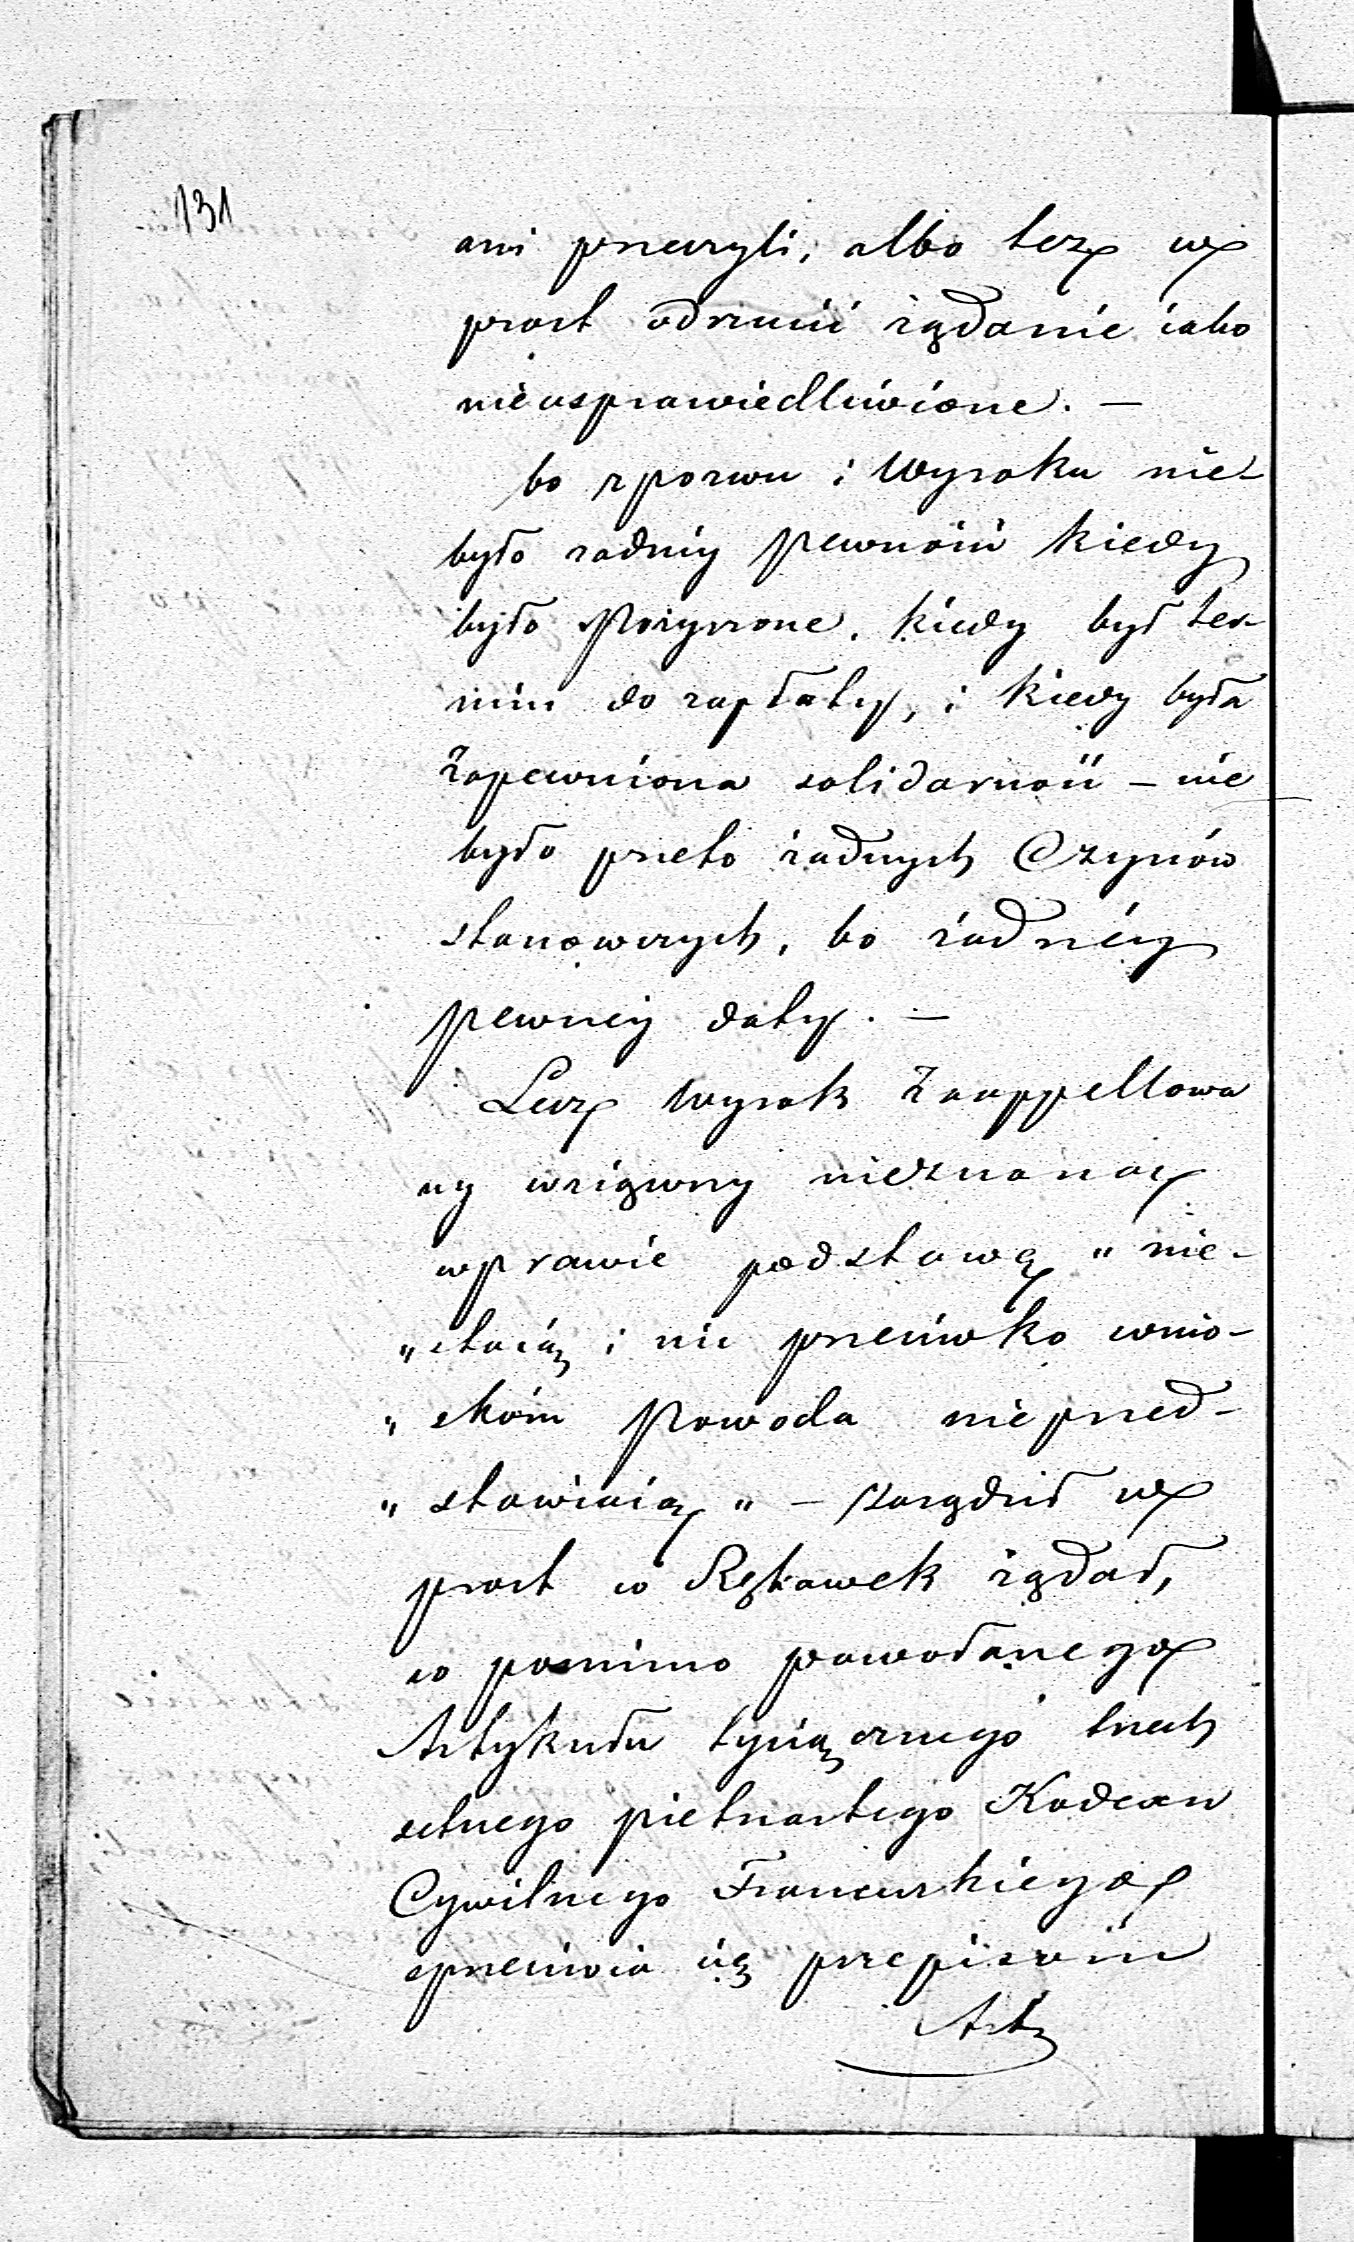 131
ani przeczyli, albo też w
prost odrzucić żądanie iako
nieusprawiedliwione. —
bo z pozwu i Wyroku nie-
było żadnéy pewności kiedy
było Pożyczone, kiedy był ter-
min do zapłaty, i kiedy była
Zapewniona solidarność – nie
było przeto żadnych Czynów
stanowczych, bo żadnéy
pewnéy daty. —
Lecz Wyrok Zaappellowa
ny wziąwszy nieznaną
w prawie podstawę „ nie-
„ staią i nic przeciwko wnio-
„ skóm Powoda nieprzed-
„ stawiaią „ – zasądził w
prost co Rękawek żądał,
co pomimo powołanego
Artykułu tysiącznego trzech
setnego pietnastego Kodexu
Cywilnego Francuskiego
sprzeciwia się przepisóm
Art